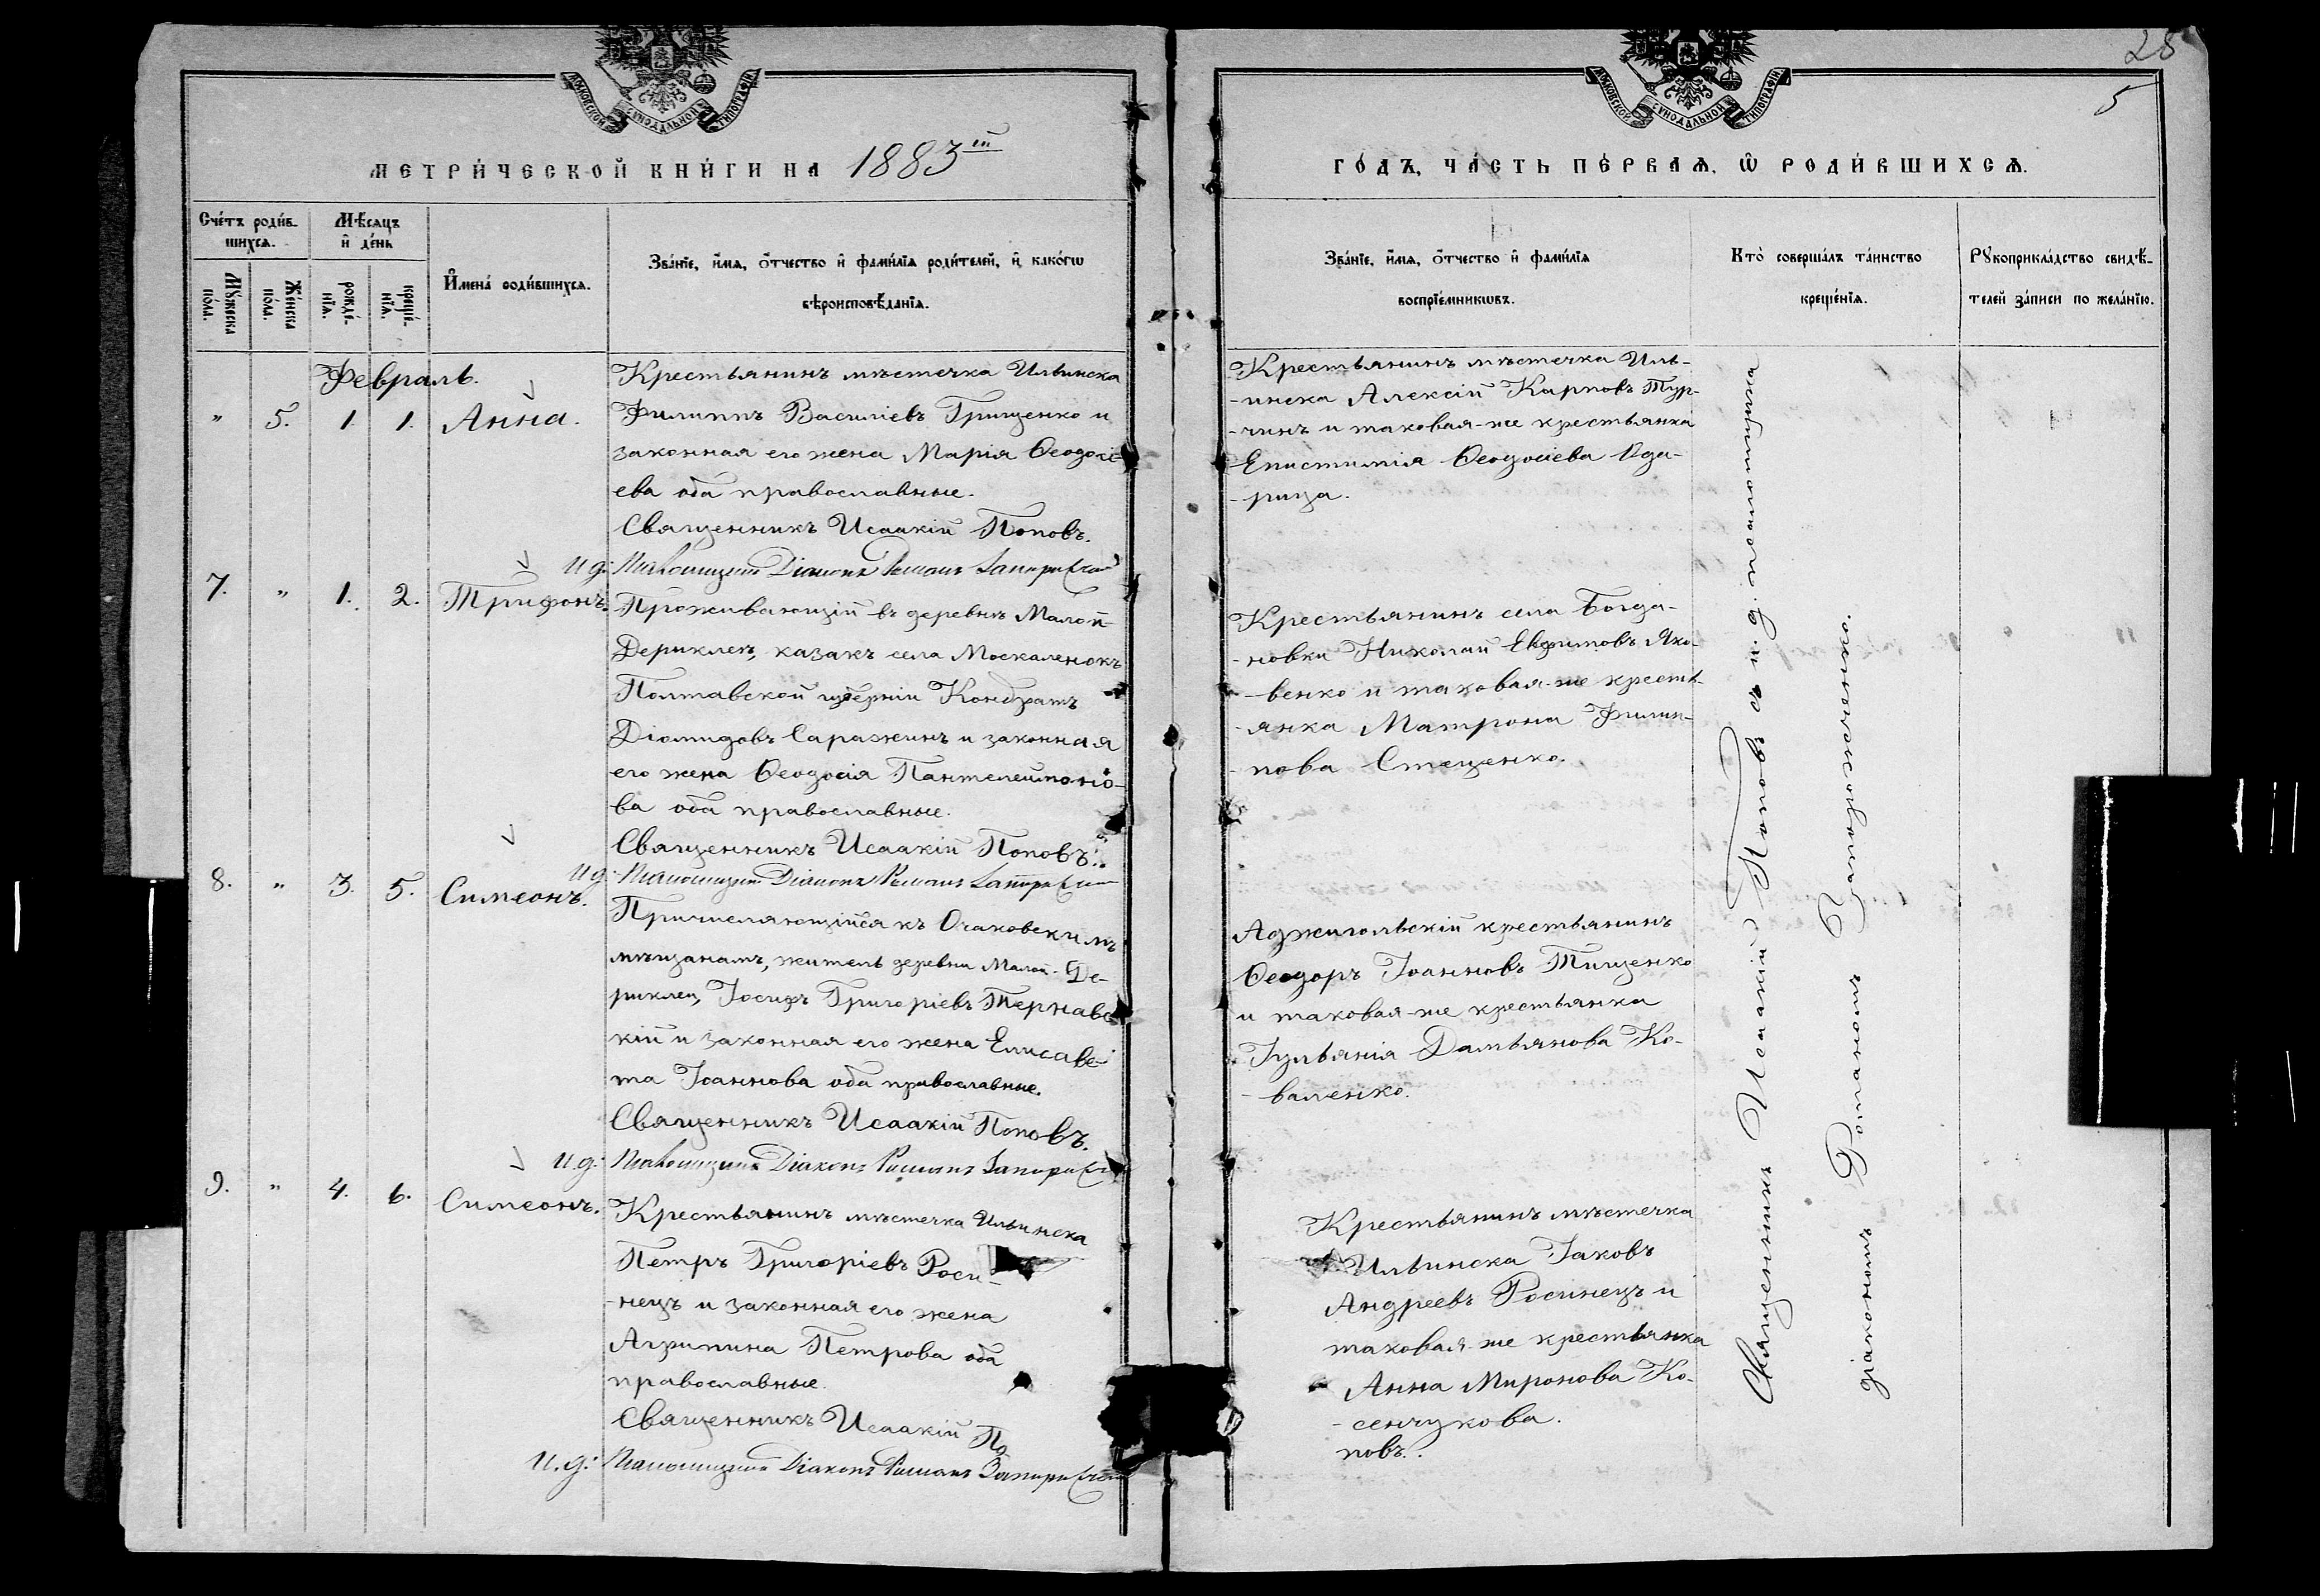 28
5
МОСКОВСКОЙ СѴНОДАЛЬНОЙ ТИПОГРАФІИ
МОСКОВСКОЙ СѴНОДАЛЬНОЙ ТИПОГРАФІИ
МЕТРИ́ЧЕСКОЙ КНИ́ГИ НА 1883й
ГО́ДЪ, ЧА́СТЬ ПЕ́РВАѦ, Ѡ҆ РОДИ́ВШИХСѦ.
Сче́тъ роди́в-
шихсѧ.
Мꙋ́жеска по́ла.
Же́нска по́ла.
Мѣ́сѧцъ и҆ де́нь
рожде́-нїѧ.
креще́-нїѧ.
И҆мена̀ роди́вшихсѧ.
Зва́нїе, и҆́мѧ, ѻ҆́тчество и҆ фами́лїѧ роди́телей, и҆ како́гѡ
вѣроисповѣ́данїѧ.
Зва́нїе, и҆́мѧ, ѻ҆́тчество и҆ фами́лїѧ
воспрїе́мникѡвъ.
Кто̀ соверша́лъ та́инство
креще́нїѧ.
Рꙋкоприкла́дство свидѣ́-
телей за́писи по жела́нїю.
Февраль.
" 5. 1. 1. Анна.
Крестьянинъ мѣстечка Ильинска
Филиппъ Василіевъ Грищенко и
законная его жена Марія Ѳеодосі-
ева оба православные.
Священникъ Исаакій Поповъ.
И д: Псаломщика Діаконъ Романъ
Крестьянинъ мѣстечка Иль-
-инска Алексій Карповъ Тур-
-чинъ и таковая-же крестьянка
Епистимія Ѳеодосіева
-рица.
7. " 1. 2. Трифонъ.
Проживающій въ деревнѣ Малой-
Дериклеѣ, казакъ села Москаленокъ
Полтавской губерніи Кондратъ
Діомидовъ Саражинъ и законная
его жена Ѳеодосія Пантелеимоно-
ва оба православные.
Священникъ Исаакій Поповъ.
И д: Псаломщика Діаконъ Романъ
Крестьянинъ села Богда-
-новки Николай Евфимовъ Яко-
-венко и таковая-же кресть-
-янка Матрона Филип-
-пова Стеценко.
8. " 3. 5. Симеонъ.
Причисляющійся къ Очаковскимъ
мѣщанамъ, житель деревни Малой-Де-
риклеи, Іосифъ Григоріевъ Тернавс-
кій и законная его жена Елисаве-
та Іоаннова оба православные.
Священникъ Исаакій Поповъ.
И д: Псаломщика Діаконъ Романъ
Аджигольскій крестьянинъ
Ѳеодоръ Іоанновъ Тищенко
и таковая-же крестьянка
Іульянія Дамьянова Ко-
-валенко.
9. " 4. 6. Симеонъ.
Крестьянинъ мѣстечка Ильинска
Петръ Григоріевъ Роси-
-нецъ и законная его жена
Агрипина Петрова оба
православные.
Священникъ Исаакій По-
И. д: Псаломщика Діаконъ Романъ
Крестьянинъ мѣстечка
Ильинска Іаковъ
Андреевъ Росинецъ и
таковая-же крестьянка
Анна Миронова Ко-
-сенчукова.
повъ.
Священникъ Исаакій Поповъ съ и. д. псаломщика
діакономъ Романомъ